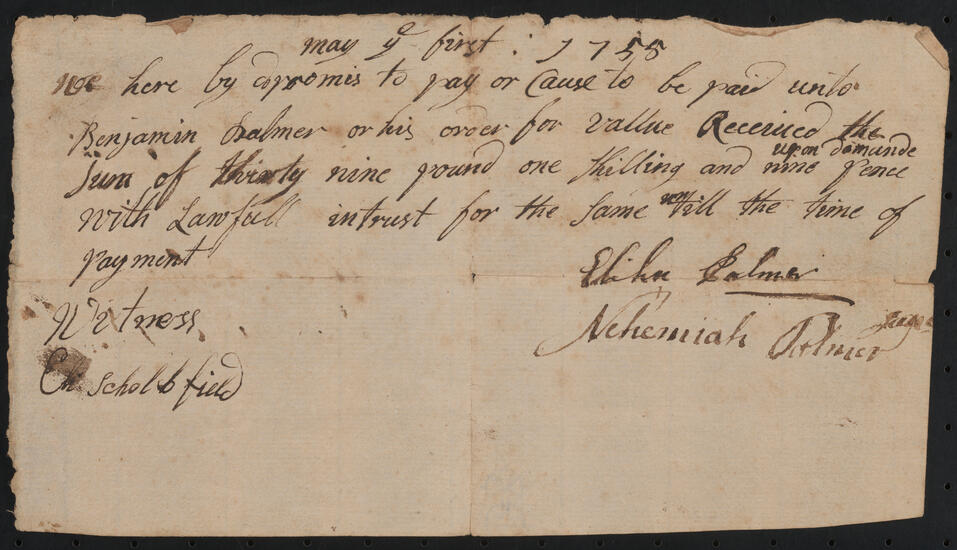 may ye first : 1755
we here by promis to pay or Cause to be paid unto
Benjamin Palmer or his order for vallue Received the
upon damande
Sum of thirty nine pound one shilling and nine pence
With Lawfull intrust for the same untill the time of
payment
Elihu Palmer
Witness
Nehemiah Palmer
Scholbfield